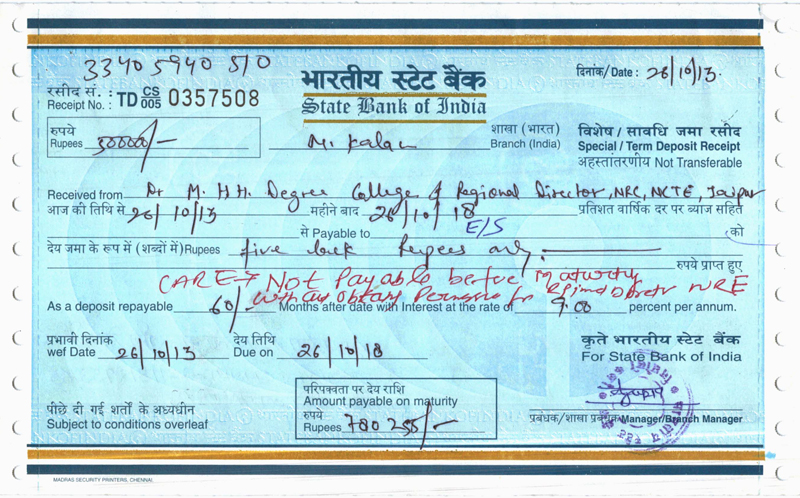 33405940 510
भारतीय स्टेट बैंक
State Bank of India
दिनांक/Date : 26/10/13
रसीद सं. :
Receipt No. : TD CS 005 0357508
रुपये
Rupees
M. Kalan
शाखा (भारत)
Branch (India)
विशेष / सावधि जमा रसीद
Special / Term Deposit Receipt
अहस्तांतरणीय Not Transferable
Received from Dr M. H H. Degree College & Regional Director, NRC, NCTE, Jaipur
आज की तिथि से 26/10/13 महीने बाद 26/10/18 प्रतिशत वार्षिक दर पर ब्याज सहित
से Payable to E/S को
देय जमा के रूप में (शब्दों में) Rupees five lack Rupees only.
रुपये प्राप्त हुए
CARE → Not Payable before Maturity
without Permission NRE
As a deposit repayable 60/- Months after date with Interest at the rate of 9.00 percent per annum.
प्रभावी दिनांक
wef Date 26/10/13
देय तिथि
Due on 26/10/18
कृते भारतीय स्टेट बैंक
For State Bank of India
परिपक्वता पर देय राशि
Amount payable on maturity
रुपये
Rupees 780255/-
पीछे दी गई शर्तों के अध्यधीन
Subject to conditions overleaf
प्रबंधक/शाखा प्रबंधक Manager/Branch Manager
MADRAS SECURITY PRINTERS, CHENNAI.